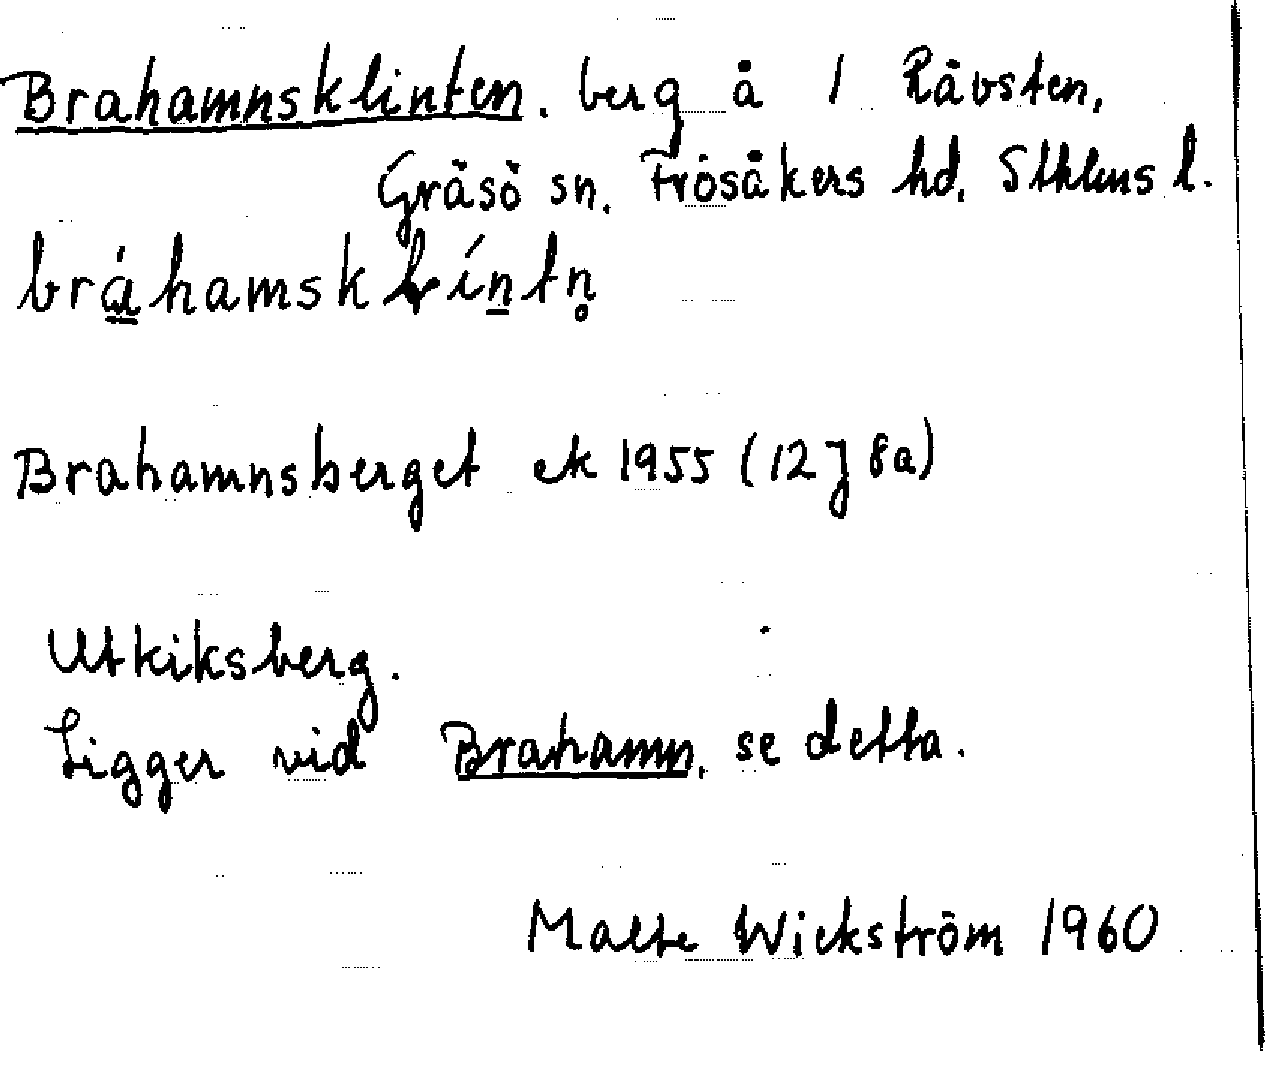 Brahamnsklinten. berg å 1 Rävsten,
Gräsö sn. Frösåkers hd. Sthlms l.
bráhamsklíntn̥
Brahamnsberget ek 1955 (12 J 8a)
Utkiksberg.
Ligger vid Brahamn, se detta.
Malte Wickström 1960